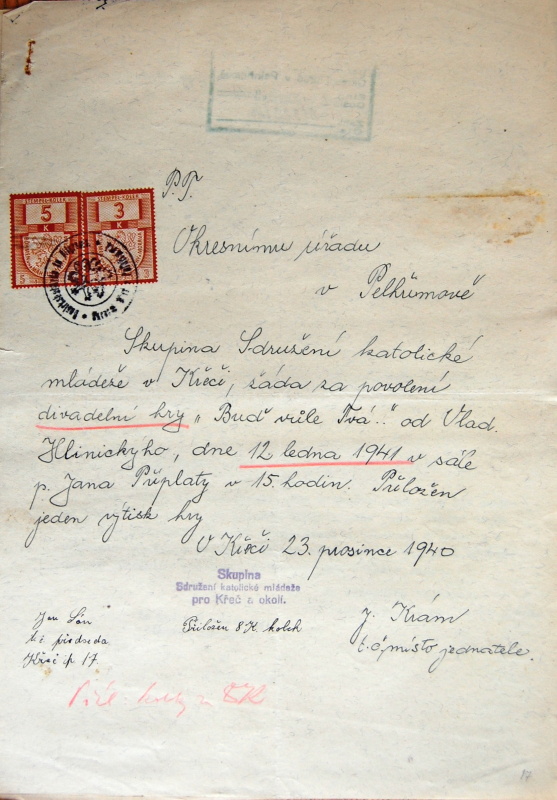 P.T.
STEMPEL-KOLEK STEMPEL-KOLEK
5 3
K K
Okresnímu úřadu
v Pelhřimově
Skupina Sdružení katolické
mládeže v Křeči, žádá za povolení
divadelní hry „Buď vůle Tvá.." od Vlad.
Hlinického, dne 12 ledna 1941 v sále
p. Jana Příplaty v 15. hodin. Přiložen
jeden výtisk hry
V Křeči 23. prosince 1940
Skupina
Sdružení katolické mládeže
pro Křeč a okolí.
Jan
t. č. předseda
Křeč čp 17.
Přiložen 8 K. kolek
J. Krám
t. č. místo jednatele.
8K
17